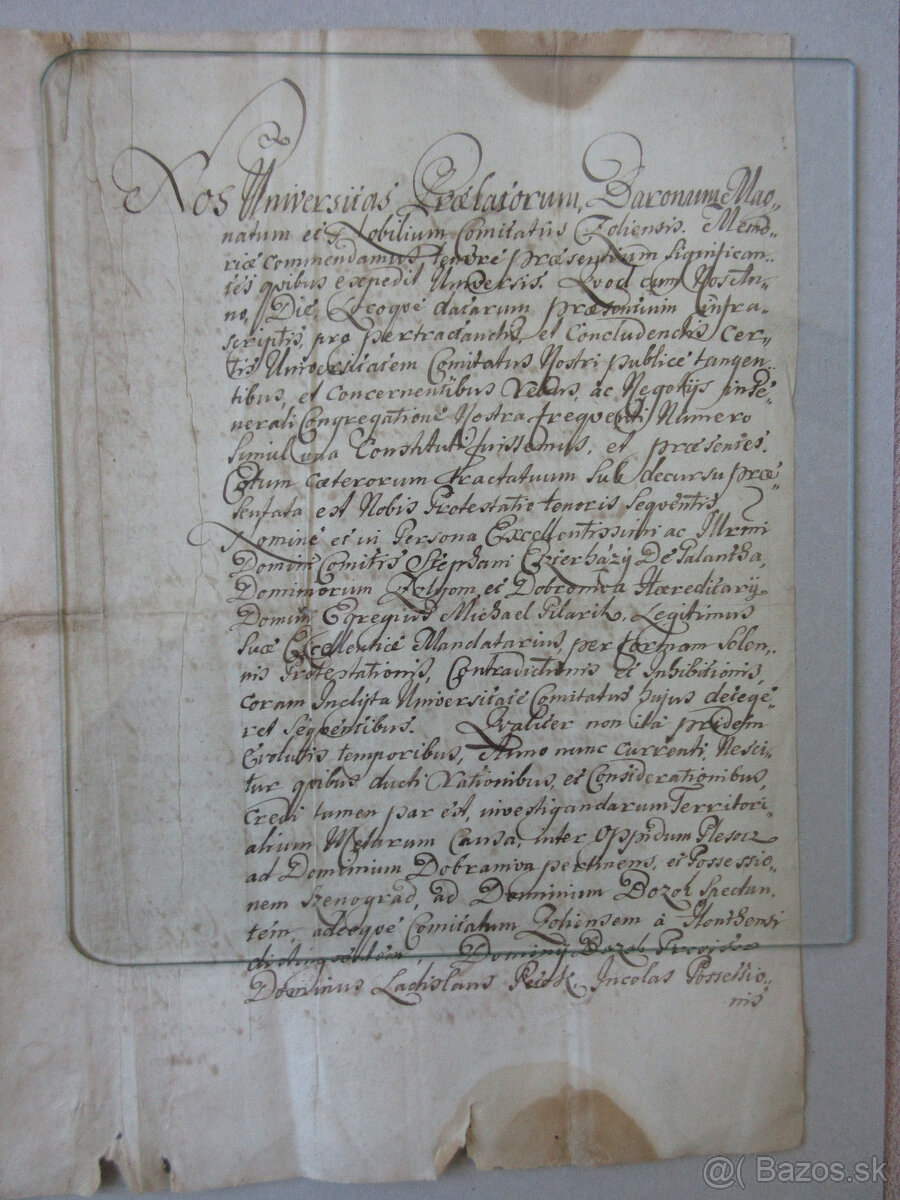 Nos Universitas Prælatorum, Baronum, Mag„
natum et Nobilium Comitatus Zoliensis. Memo„
riæ commendamus tenore præsentium significan„
tes qvibus expedit Universis. Qvod cum Nos An„
no, Die, Locoqve datarum præsentium infra„
scriptis, pro pertractandis et Concludendis Cer„
tis Universitatem Comitatus Nostri publice tangen„
tibus, et concernentibus Rebus, ac Negotijs in Ge„
nerali Congregatione Nostra freqventi Numero
simul una Constituti fuissemus, et præsentes.
Cotum cæterorum tractatuum sub decursu præ„
sentata est Nobis Protestatio tenoris Seqventis
Nomine et in Persona Excellentissimi ac Illrmi
Domini Comitis Stephani Eszterházÿ De Galantha,
Dominiorum Zolyom, et Dobroniva Hæreditarÿ
Domini Egregius Michael Pilarik, Legitimus
Suæ Excellentiæ Mandatarius, per formam Solen„
nis Protestationis, Contradictionis et Inhibitionis,
coram Inclyta Universitate Comitatus hujus detege„
ret Seqventibus. Qvaliter non ita pridem
Evolutis temporibus, Anno nunc currenti, Nesci„
tur qvibus ducti Rationibus, et Considerationibus,
credi tamen par est, investigandarum Territori„
alium Metarum Causa, inter Oppidum Plesocz
ad Dominium Dobraniva pertinens, et Possessio„
nem Szenográd, ad Dominium Bozok Spectan„
tem, adeoqve Comitatum Zoliensem à Honthensi
distingventem, Dominij Bozok Provisor
Dominus Ladislaus Incolas Possessio„
nis
@( Bazos.sk